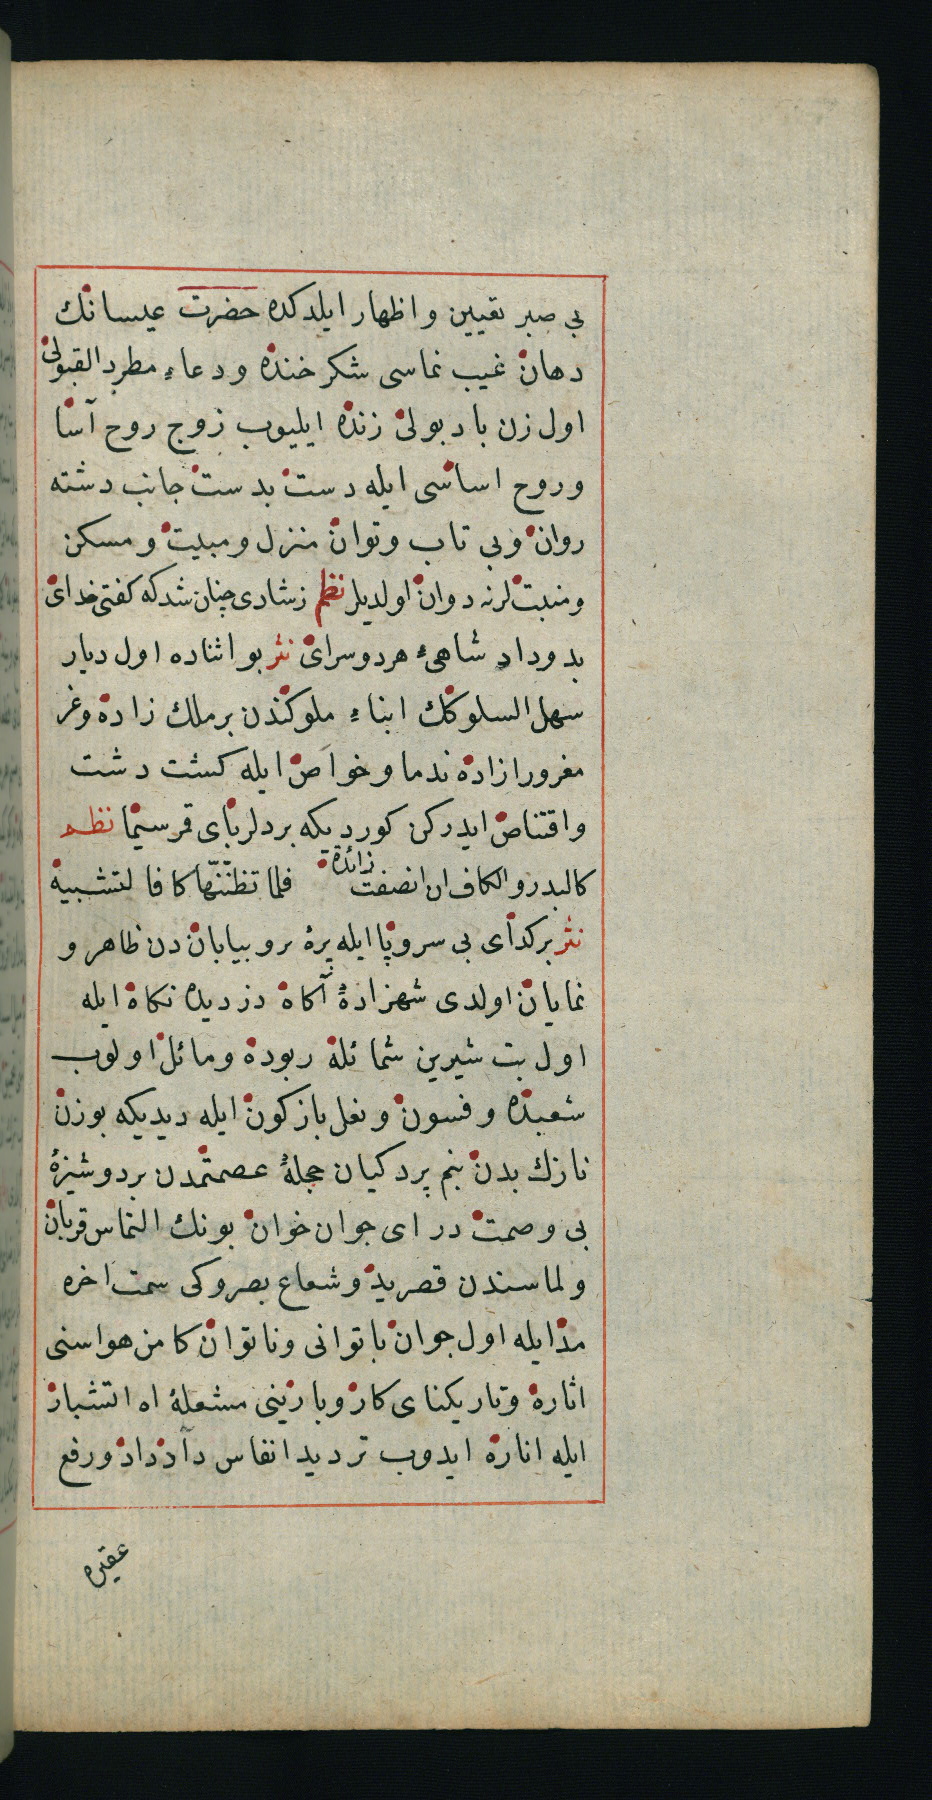 بی صبر تعیین و اظهار ایلدکده حضرت عیسانك
دهان غیب نماسی شکر خنده و دعاء مطرد القبولی
اول زن باد بولی زنده ایلیوب زوج روح آسا
و روح اساسی ایله دست بدست جانب دشته
روان و بی تاب و توان منزل و مبیت و مسکن
و منبت لرنه دوان اولدیلر نظم زشادی چنان شد که کفتی خدای
بدو داد شاهیء هر دو سرای نثر بو اثناده اول دیار
سهل السلوکك ابناء ملوکندن بر ملك زاده و غر
مغرور ازاده ندما و خواص ایله کشت دشت
و اقتناص ایدرکن کوردیکه بر دلربای قمر سیما نظم
کالبدر والکاف ان انصفت زائدة فلا تظننّها کافا لتشبیه
نثر بر کدای بی سر و پا ایله یره برو بیاباندن ظاهر و
نمایان اولدی شهزادهٔ آکاه دزدیده نکاه ایله
اول بت شیرین شمائله ربوده و مائل اولوب
شعبده و فسون و نعل باز کون ایله دیدیکه بوزن
نازك بدن بنم پردکیان حجلهٔ عصمتمدن بر دوشیزهٔ
بی وصمت در ای جوان خوان بونك التماس قربان
و لماسندن قصرید و شعاع بصروکی سمت اخره
مد ایله اول جوان باتوانی و ناتوان کامن هواسنی
اثاره و تاریکنای کار و بارینی مشعلهٔ اه اتشبار
ایله اناره ایدوب تردید انفاس داد داد و رفع
عقیره